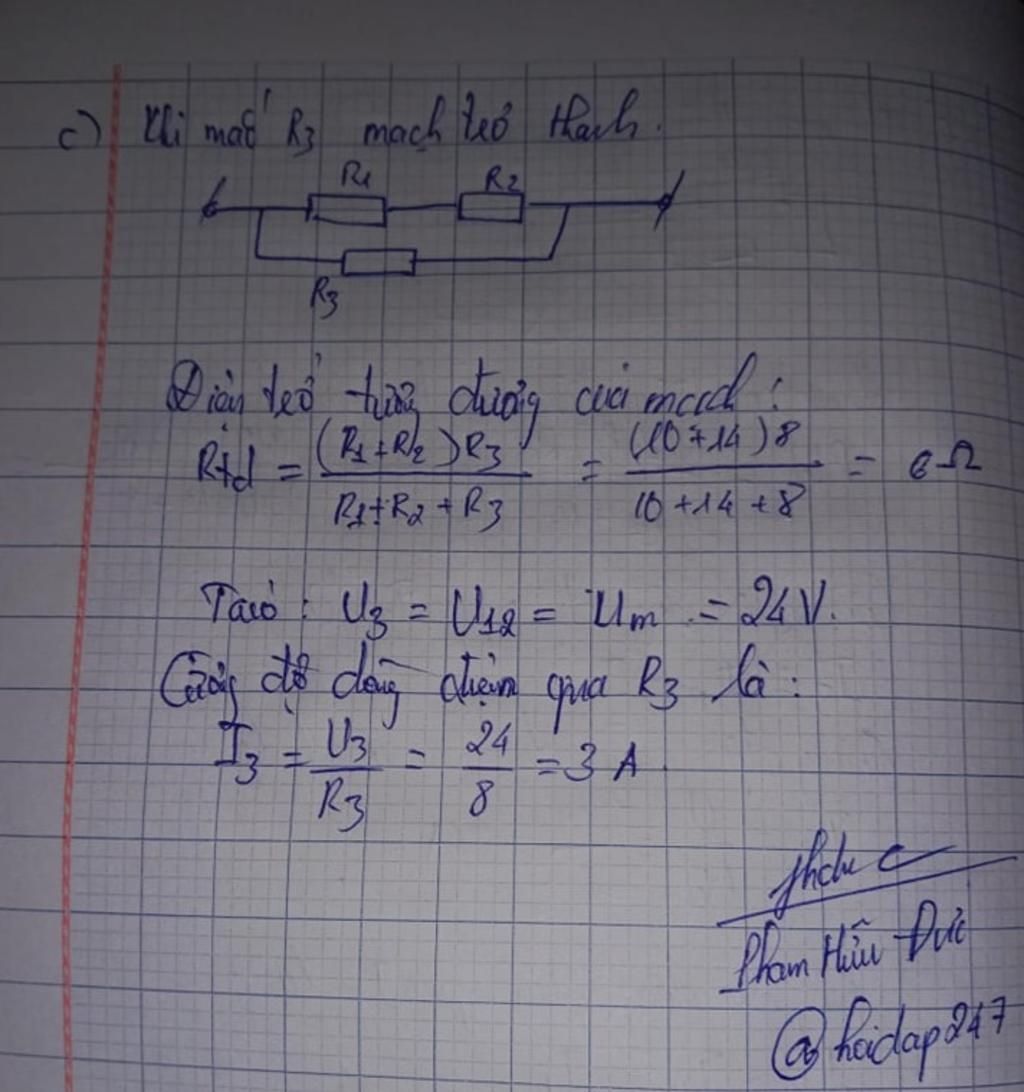 c) Khi mắc R3 mạch trở thành.
R1 R2
R3
Điện trở tương đương của mạch :
Rtđ = (R1+R2)R3 / R1+R2+R3 = (10+14)8 / 10+14+8 = 6Ω
Ta có : U3 = U12 = Um = 24V.
Cường độ dòng điện qua R3 là :
I3 = U3 / R3 = 24 / 8 = 3 A.
Phạm Hữu Đức
@hoidap247